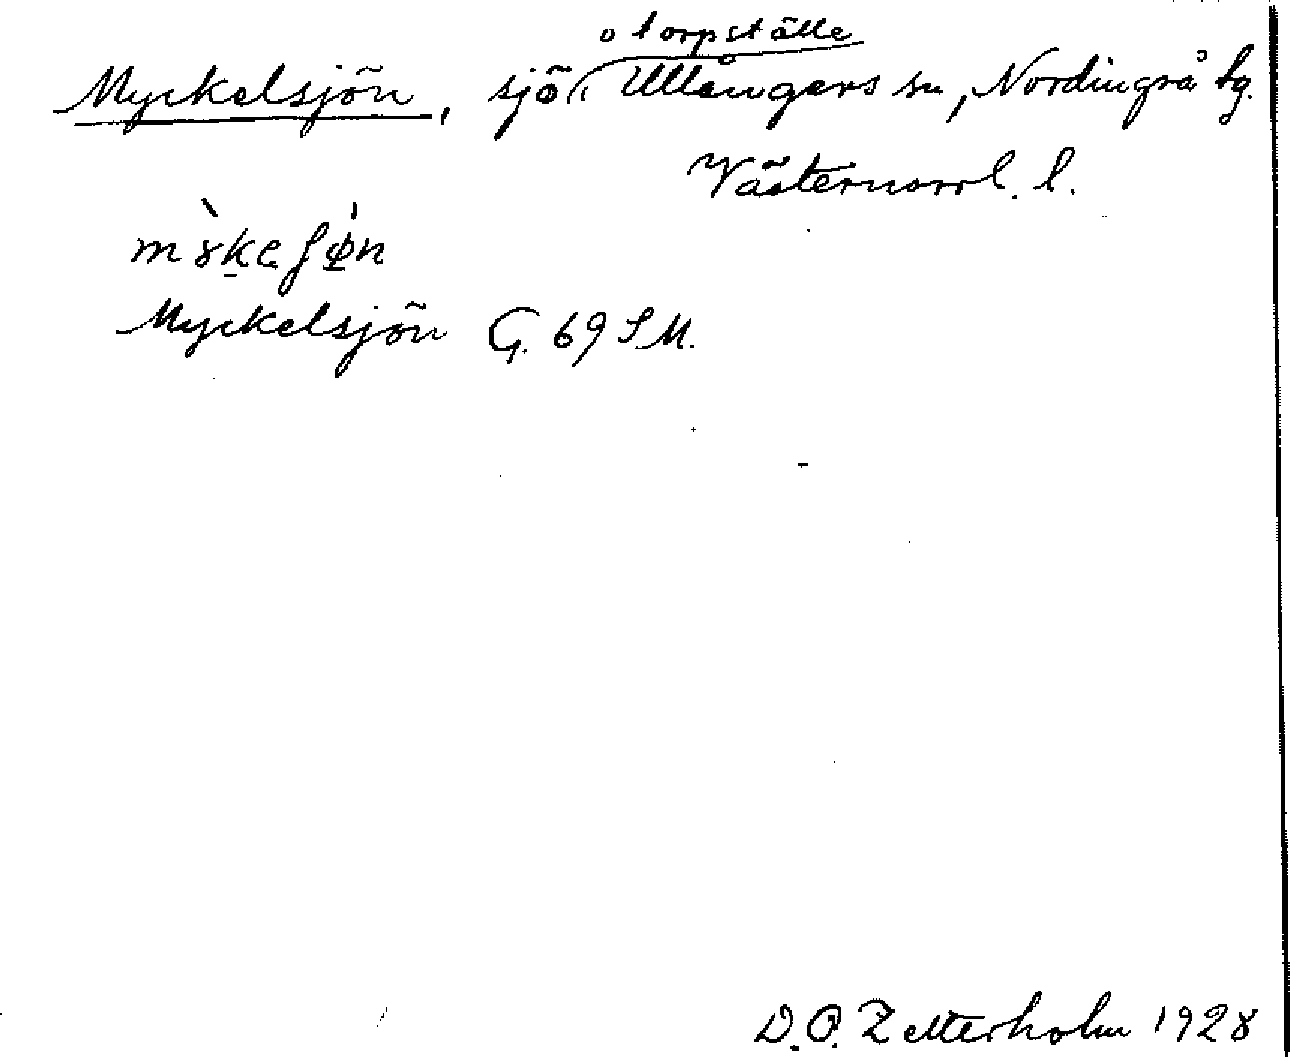 o torpställe
Myckelsjön, sjö Ullångers sn, Nordingrå tg.
Västernorrl. l.
Myckelsjön G. 69 SM.
D. O. Zetterholm 1928